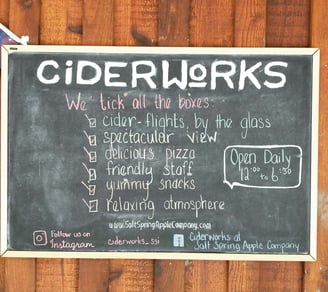 CiDERWORKS
We tick all the boxes:
cider-flights, by the glass
spectacular view
delicious pizza
friendly staff
yummy snacks
relaxing atmosphere
Open Daily
12:00 to 6:30
www.SaltSpringAppleCompany.com
Follow us on
Instagram
ciderworks_ssi
Ciderworks at
Salt Spring Apple Company